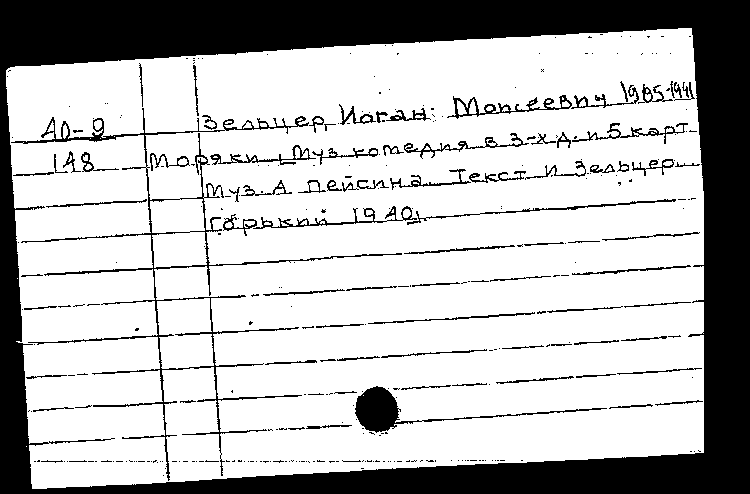 АО-9 Зельцер, Иоган: Моисеевич 1905-1941
148 Моряки, Муз комедия в 3-х д. и 5 карт
Муз. А Пейсина. Текст И Зельцер.
Горький 1940.